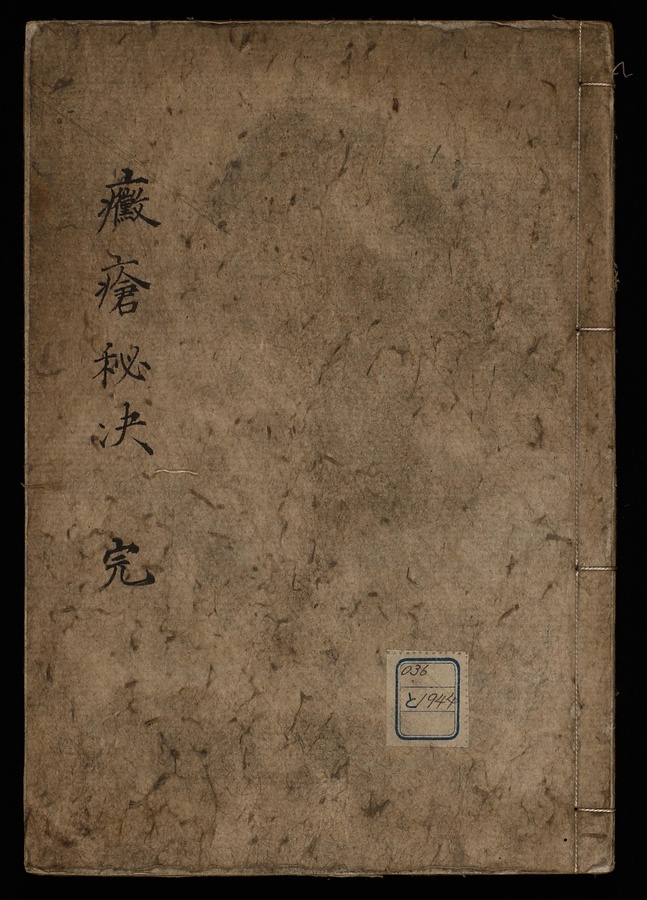 黴瘡秘决 完
036
と1944